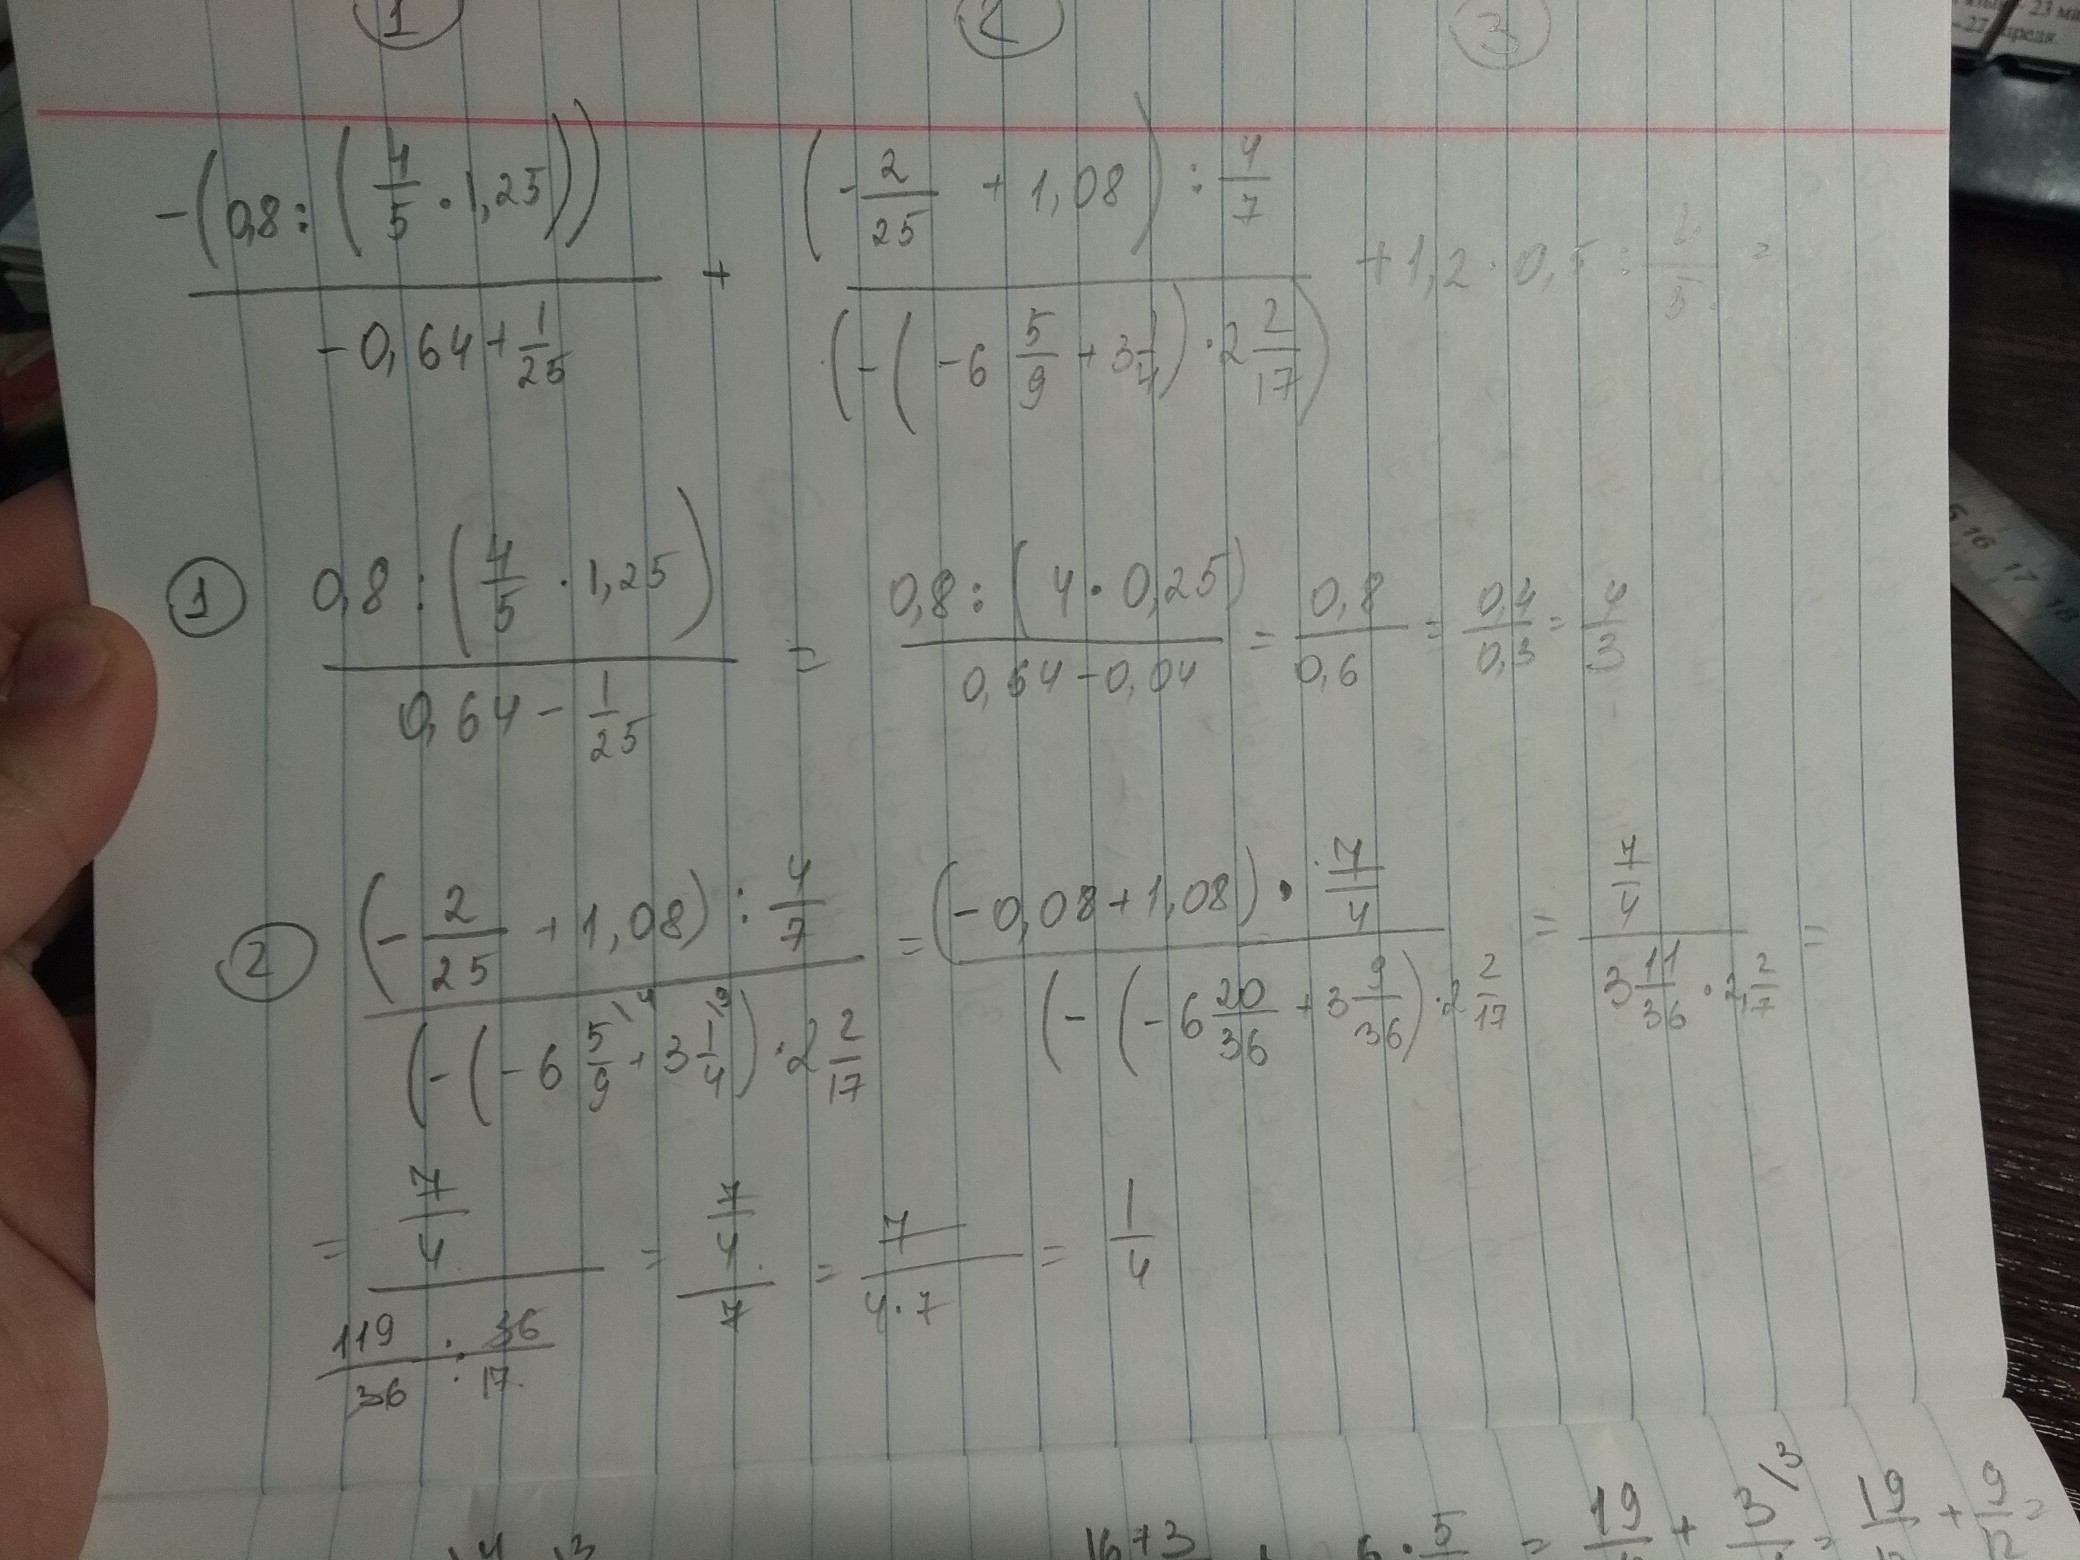 1 2 3
-(0,8 : (4/5 · 1,25)) / (-0,64 + 1/25) + (-2/25 + 1,08) : 4/7 / (-(-6 5/9 + 3 1/4) · 2 2/17) + 1,2 · 0,5 : =
1 0,8 : (4/5 · 1,25) / (0,64 - 1/25) = 0,8 : (4 · 0,25) / (0,64 - 0,04) = 0,8/0,6 = 0,4/0,3 = 4/3
2 (-2/25 + 1,08) : 4/7 / (-(-6 5/9 \4 + 3 1/4 \9) · 2 2/17 = (-0,08 + 1,08) · 7/4 / (-(-6 20/36 + 3 9/36) · 2 2/17 = 7/4 / 3 11/36 · 2 2/17 =
= 7/4 / 119/36 : 36/17 = 7/4 / 7 = 7 / 4·7 = 1/4
16+3 6 · 5 = 19 + 3\3 = 19 + 9/12 =
23
27
16 17 18